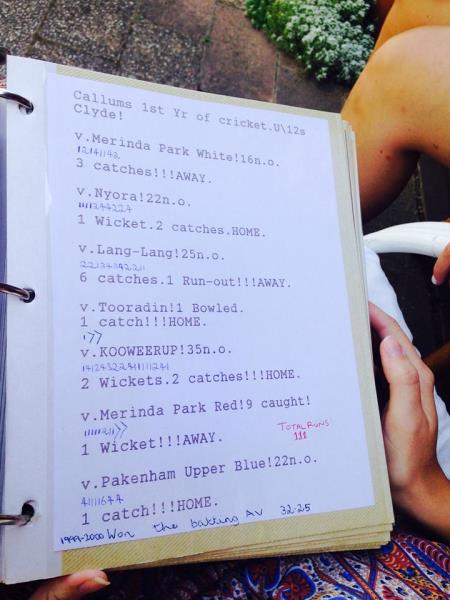 Callums 1st Yr of cricket.U\12s
Clyde!
v.Merinda Park White!16n.o.
12141142
3 catches!!!AWAY.
v.Nyora!22n.o.
1111244224
1 Wicket.2 catches.HOME.
v.Lang-Lang!25n.o.
22134342211
6 catches.1 Run-out!!!AWAY.
v.Tooradin!1 Bowled.
1 catch!!!HOME.
1>>
v.KOOWEERUP!35n.o.
14124322411111241
2 Wickets.2 catches!!!HOME.
v.Merinda Park Red!9 caught!
11111211>>
1 Wicket!!!AWAY.
TOTAL RUNS
111
v.Pakenham Upper Blue!22n.o.
41111644
1 catch!!!HOME.
1999-2000 Won the batting AV 32.25